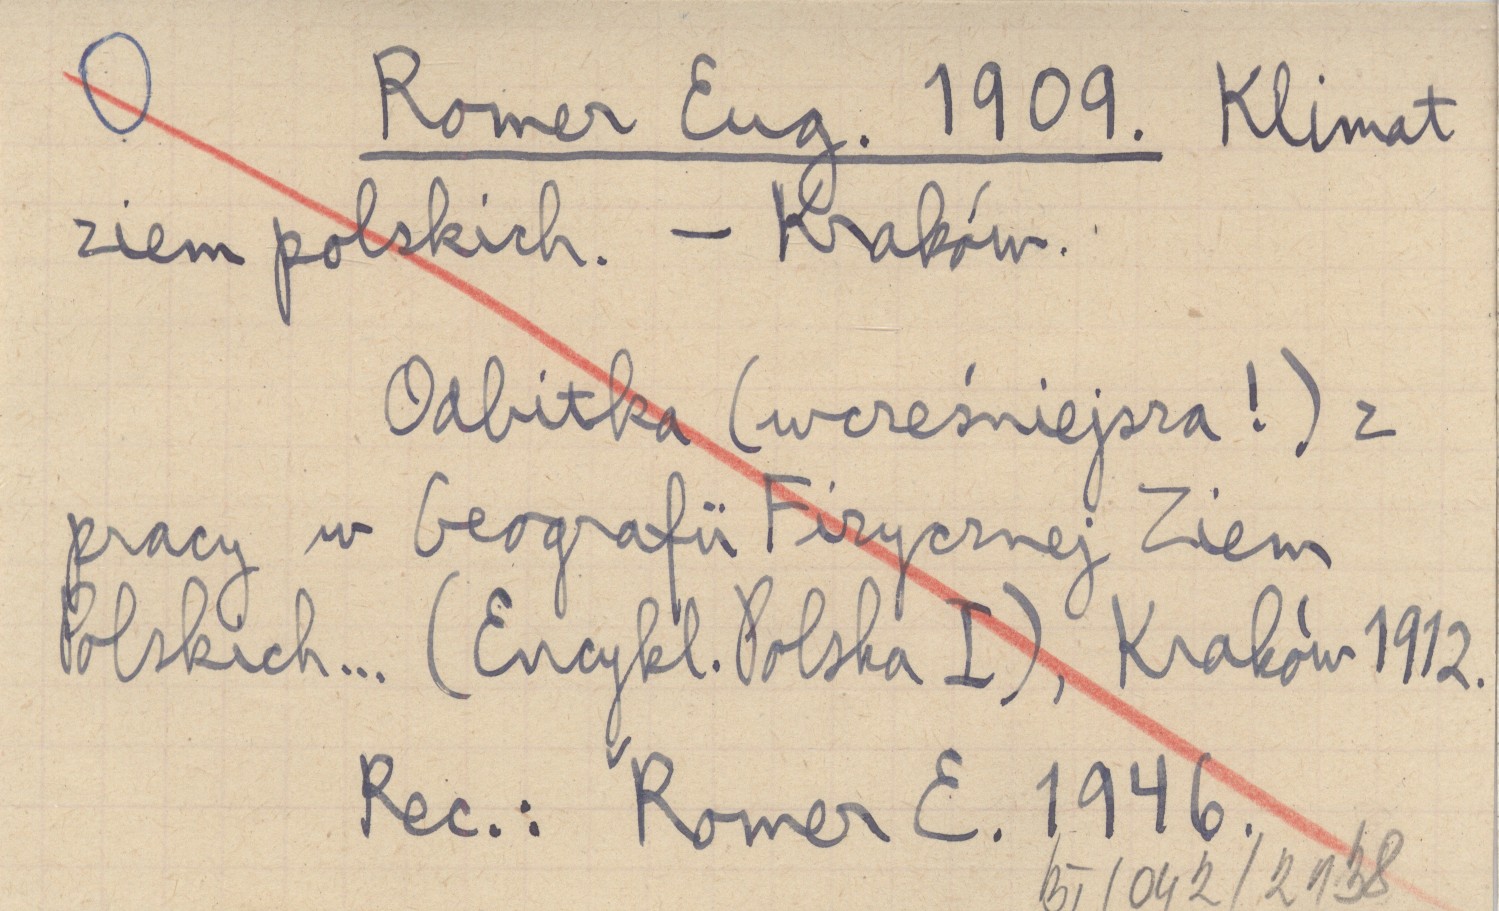 O Romer Eug. 1909. Klimat
ziem polskich. – Kraków.
Odbitka (wcześniejsza!) z
pracy w Geografii Fizycznej Ziem
Polskich... (Encykl. Polska I), Kraków 1912.
Rec.: Romer E. 1946.
/042/2138